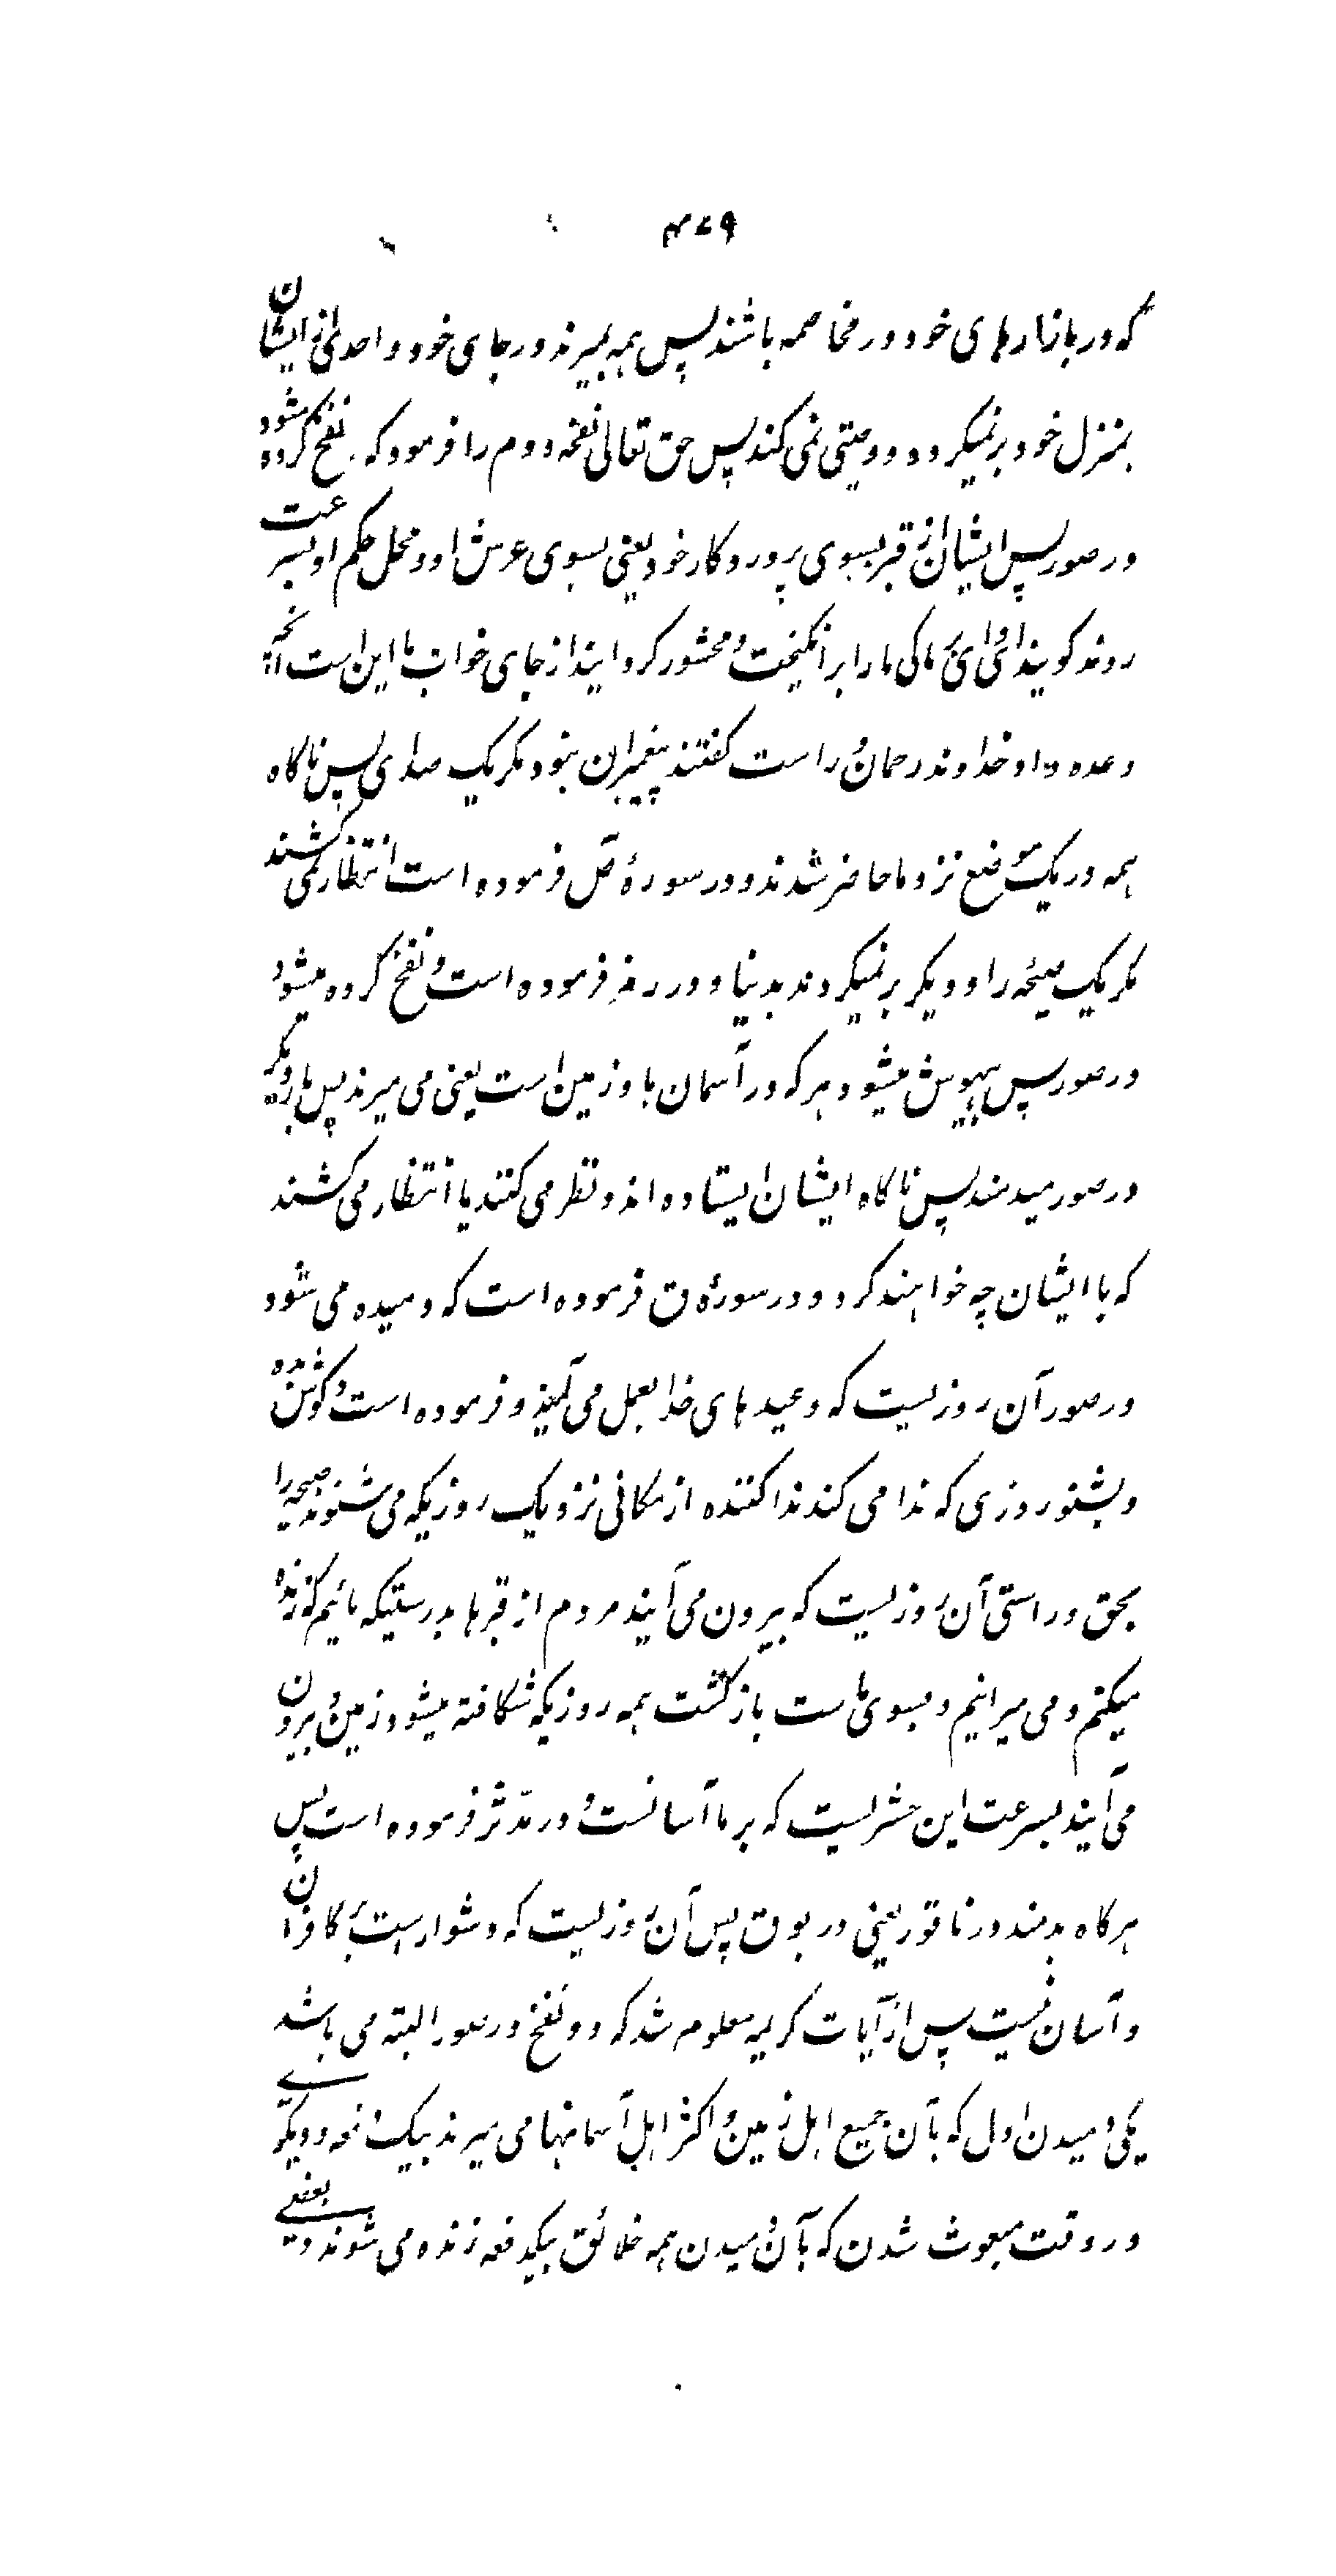 ۴۷۹
که در بازارهای خود در مخاصمه باشند پس همه بمیرند در جای خود و احدی از ایشان
بمنزل خود برنمیگردد و وصیتی نمی کند پس حق تعالی نفخه دوم را فرمود که نفخ کرده میشود
در صور پس ایشان از قبر بسوی پروردکار خود یعنی بسوی عرش او و محل حکم او بسرعت
روند کویند ای وای بر ما کی ما را برانکیخت و محشور کردانید از جای خواب ما این است آنچه
وعده داد خداوند رحمان و راست کفتند پیغمبران نبود مکر یک صدای پس ناکاه
همه در یک موضع نزد ما حاضر شدند و در سورهٔ ص فرموده است انتظار نمی کشند
مکر یک صیحه را و دیکر برنمیکردند بدنیا و در زمر فرموده است و نفخ کرده میشود
در صور پس بیهوش میشود هر که در آسمان ها و زمین است یعنی می میرند پس بار دیکر
در صور میدمند پس ناکاه ایشان ایستاده اند و نظر می کنند یا انتظار می کشند
که با ایشان چه خواهند کرد و در سورهٔ ق فرموده است که دمیده می شود
در صور آن روزیست که وعیدهای خدا بعمل می آید و فرموده است و کوش بده
و بشنو روزی که ندا می کند ندا کننده از مکانی نزدیک روزیکه می شنوند صیحه را
بحق و راستی آن روزیست که بیرون می آیند مردم از قبرها بدرستیکه مائیم که زنده
میکنم و می میرانیم و بسوی ماست بازکشت همه روزیکه شکافته میشود زمین و بیرون
می آیند بسرعت این حشریست که بر ما آسانست و در مدّثر فرموده است پس
هرکاه بدمند در ناقور یعنی در بوق پس آن روزیست که دشوار است بر کافران
و آسان نیست پس از آیات کریمه معلوم شد که دو نفخ در صور البته می باشد
یکی دمیدن اول که بآن جمیع اهل زمین و اکثر اهل آسمانها می میرند بیک دفعه و دیکری
در وقت مبعوث شدن که بآن دمیدن همه خلائق بیکدفعه زنده می شوند و بعضی